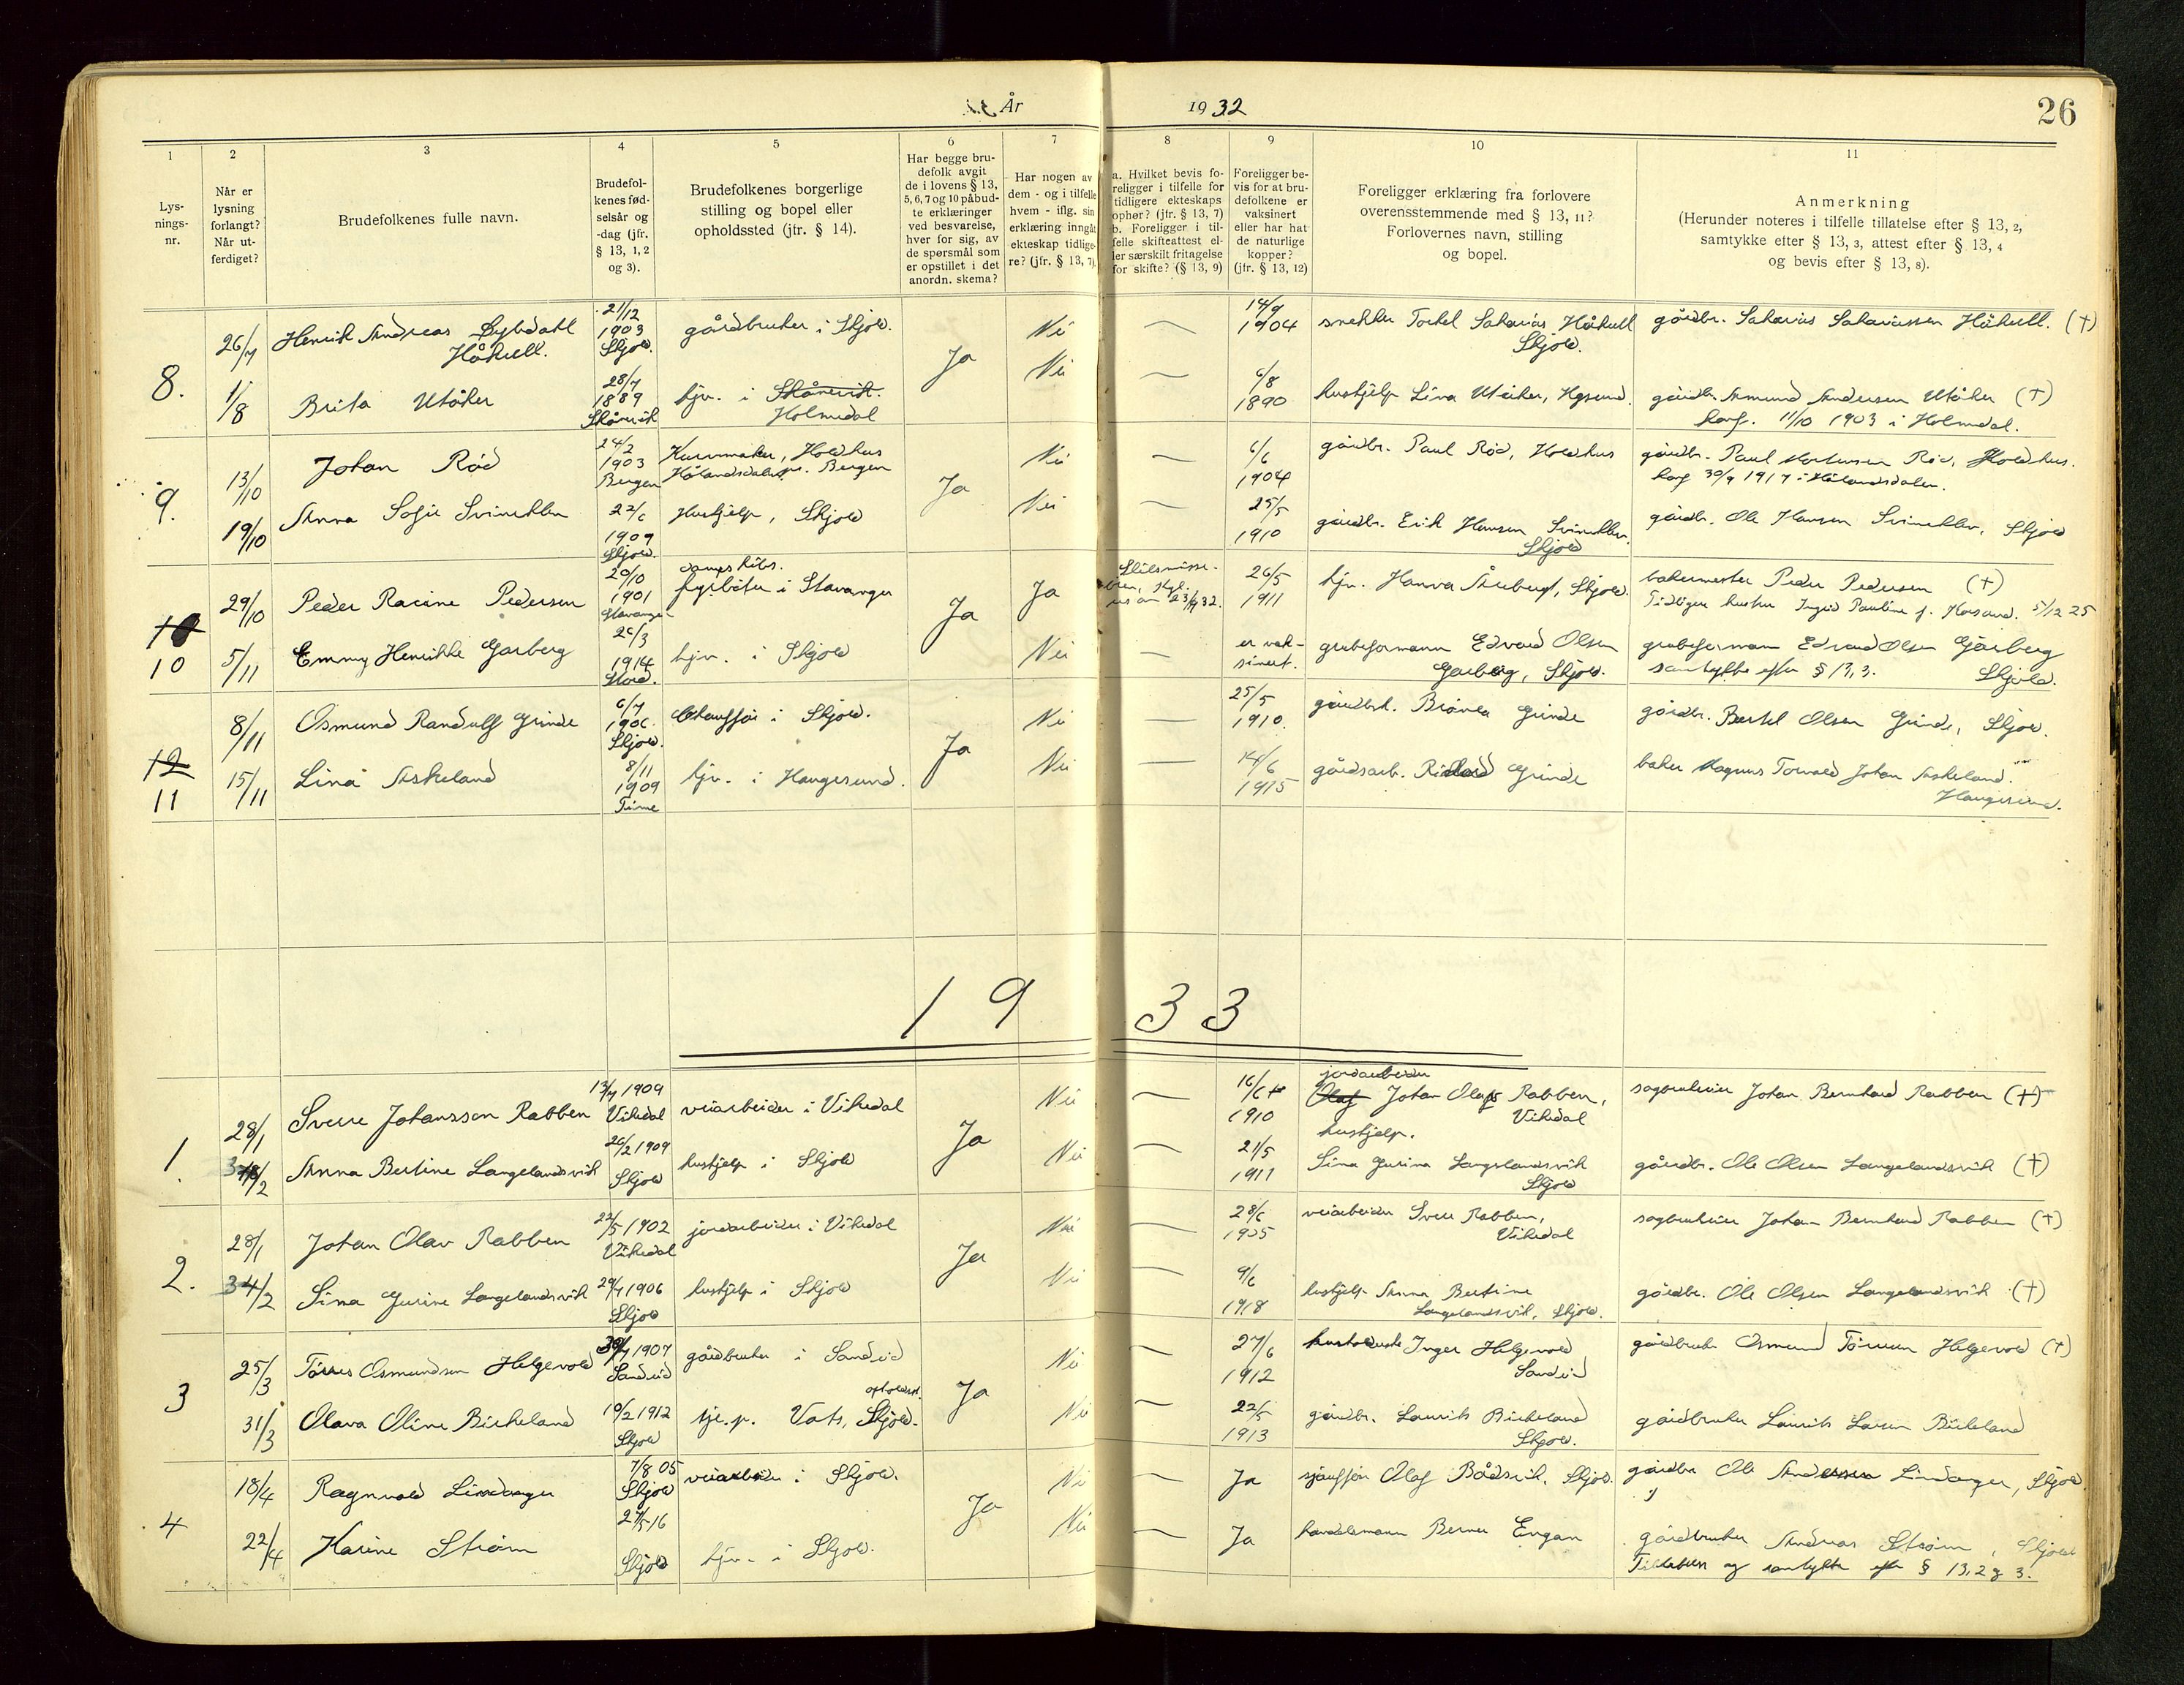 År 1932
26
1 2 3 4 5 6 7 8 9 10 11
Lysnings-nr.
Når er lysning forlangt? Når utferdiget?
Brudefolkenes fulle navn.
Brudefolkenes fødselsår og -dag (jfr. § 13, 1, 2 og 3).
Brudefolkenes borgerlige stilling og bopel eller opholdssted (jfr. § 14).
Har begge brudefolk avgit de i lovens § 13, 5, 6, 7 og 10 påbudte erklæringer ved besvarelse, hver for sig, av de spørsmål som er opstillet i det anordn. skema?
Har nogen av dem - og i tilfelle hvem - iflg. sin erklæring inngått ekteskap tidligere? (jfr. § 13, 7).
a. Hvilket bevis foreligger i tilfelle for tidligere ekteskaps ophør? (jfr. § 13, 7) b. Foreligger i tilfelle skifteattest eller særskilt fritagelse for skifte? (§ 13, 9)
Foreligger bevis for at brudefolkene er vaksinert eller har hat de naturlige kopper? (jfr. § 13, 12)
Foreligger erklæring fra forlovere overensstemmende med § 13, 11? Forlovernes navn, stilling og bopel.
Anmerkning (Herunder noteres i tilfelle tillatelse efter § 13, 2, samtykke efter § 13, 3, attest efter § 13, 4 og bevis efter § 13, 8).
8. 26/7 Henrik Andreas Dybdahl Håkull. 21/12 1903 Skjold. gårdbruker i Skjold. Ja Nei — 14/9 1904 snekker Torkel Sakarias Håkull Skjold. gårdbr. Sakarias Sakariassen Håkull. (+)
1/8 Brita Utåker 28/7 1889 Skånevik hjv. i Skånevik. Holmedal Nei — 6/8 1890 hushjelp Lina Utåker, Hgsund. gårdbr. Amund Andersen Utåker (+)
konf. 11/10 1903 i Holmedal.
9. 13/10 Johan Rød 24/2 1903 Bergen Kurvmaker, Holdhus Hålandsdalen pr. Bergen Ja Nei — 6/6 1904 gårdbr. Paul Rød, Holdhus gårdbr. Paul Mortensen Rød, Holdhus.
konf 30/9 1917 i Hålandsdalen.
19/10 Anna Sofie Svinekllev 22/6 1909 Skjold. Hushjelp, Skjold Nei — 25/5 1910 gårdbr. Erik Hansen Svineklev. Skjold gårdbr. Ole Hansen Svineklev, Skjold
10 29/10 Peder Racine Pedersen 20/10 1901 Stavanger dampskibs. fyrbøter i Stavanger Ja Ja 23/9 32. 26/5 1911 hjv. Hanna Areberg, Skjold. bakermester Peder Pedersen (+)
Tidligere hustru Ingrid Pauline f. 5/12 25
10 5/11 Emmy Henrikke Garberg 26/3 1914 Stord. hjv. i Skjold Nei — er vaksinert. grubeformann Edvard Olsen Garberg, Skjold. grubeformann Edvard Olsen Garberg
samtykke efter § 13, 3. Skjold.
12 8/11 Osmund Randulf Grinde 6/7 1906. Skjold. Chauffør i Skjold. Ja Nei — 25/5 1910. gårdbr. Grinde gårdbr. Bertel Olsen Grinde, Skjold.
11 15/11 Lina Askeland 8/11 1909 Time hjv. i Haugesund. Nei — 14/6 1915 gårdsarb. Rikard Grinde baker Magnus Torvald Johan Askeland. Haugesund.
1933
1. 28/1 Sverre Johansson Rabben 13/7 1909 Vikedal veiarbeider i Vikedal Ja Nei — 16/6 1910 jordarbeider Olaf Johan Olaf Rabben, Vikedal sagbrukeier Johan Bernhard Rabben (+)
/2 Anna Bertine Langelandsvik 26/2 1909 Skjold hushjelp i Skjold Nei — 21/5 1911 hushjelp. Sina Gurina Langelandsvik Skjold gårdbr. Ole Olsen Langelandsvik (+)
2. 28/1 Johan Olav Rabben 22/5 1902 Vikedal jordarbeider i Vikedal Ja Nei — 28/6 1905 veiarbeider Sverre Rabben, Vikedal sagbrukeier Johan Bernhard Rabben (+)
4/2 Sina Gurine Langelandsvik 29/7 1906 Skjold hushjelp i Skjold Nei — 9/6 1918 hushjelp Anna Bertine Langelandsvik, Skjold. gårdbr. Ole Olsen Langelandsvik (+)
3 25/3 Tørres Osmundsen Helgevold 1907 Sandeid gårdbruker i Sandeid Ja Nei — 27/6 1912 Inger Helgevold Sandeid gårdbruker Osmund Tørresen Helgevold (+)
31/3 Olava Oline Birkeland 10/2 1912 Skjold tje.p. Vats, opholdsst. Skjold. Nei — 22/5 1913 gårdbr. Laurits Birkeland Skjold. gårdbruker Laurits Larsen Birkeland
4 18/4 Ragnvald Lindanger 7/8 05 Skjold veiarbeider i Skjold. Ja Nei — Ja sjauffør Olaf Bådsvik, Skjold. gårdbr Ole Andersen Lindanger, Skjold.
22/4 Karine Strøm 27/5 16 Skjold hjv. i Skjold. Nei — Ja handelsmann Berner Engan gårdbruker Andreas Strøm, Skjold
Tillatelse og samtykke efter § 13, 2 og 3.